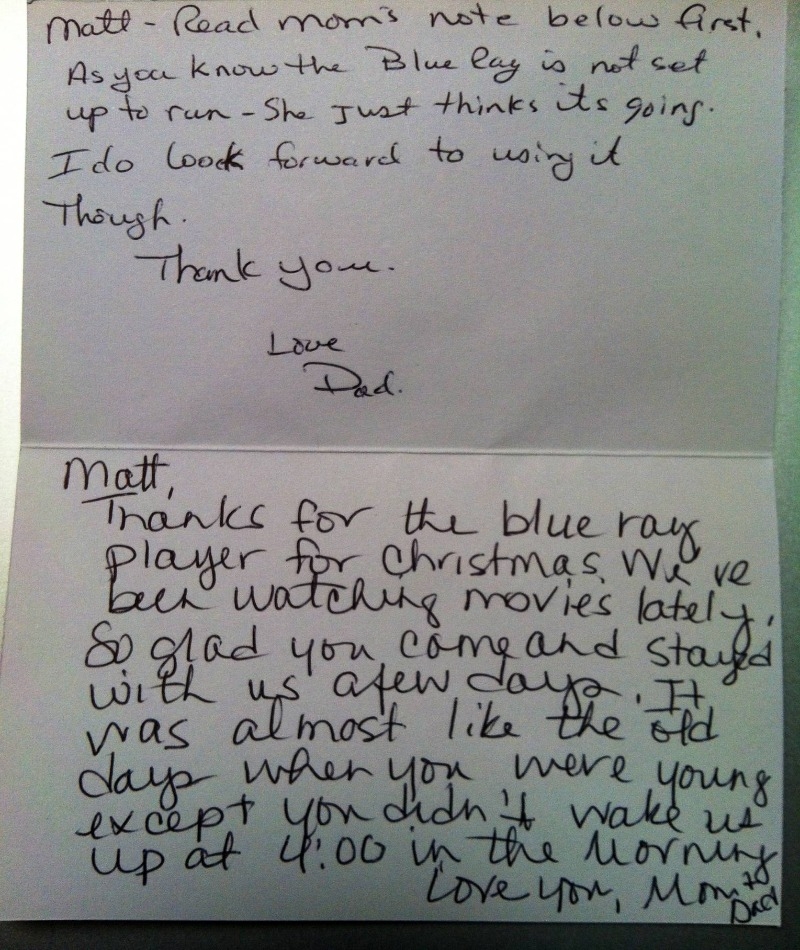 Matt - Read mom's note below first.
As you know the Blue Ray is not set
up to run - She Just thinks its going.
I do look forward to using it
Though.
Thank you.
Love
Dad.
Matt,
Thanks for the blue ray
player for Christmas. We've
been watching movies lately.
So glad you came and stayed
with us a few days. It
was almost like the old
days when you were young
except you didn't wake us
up at 4:00 in the Morning
Love you, Mom +
Dad